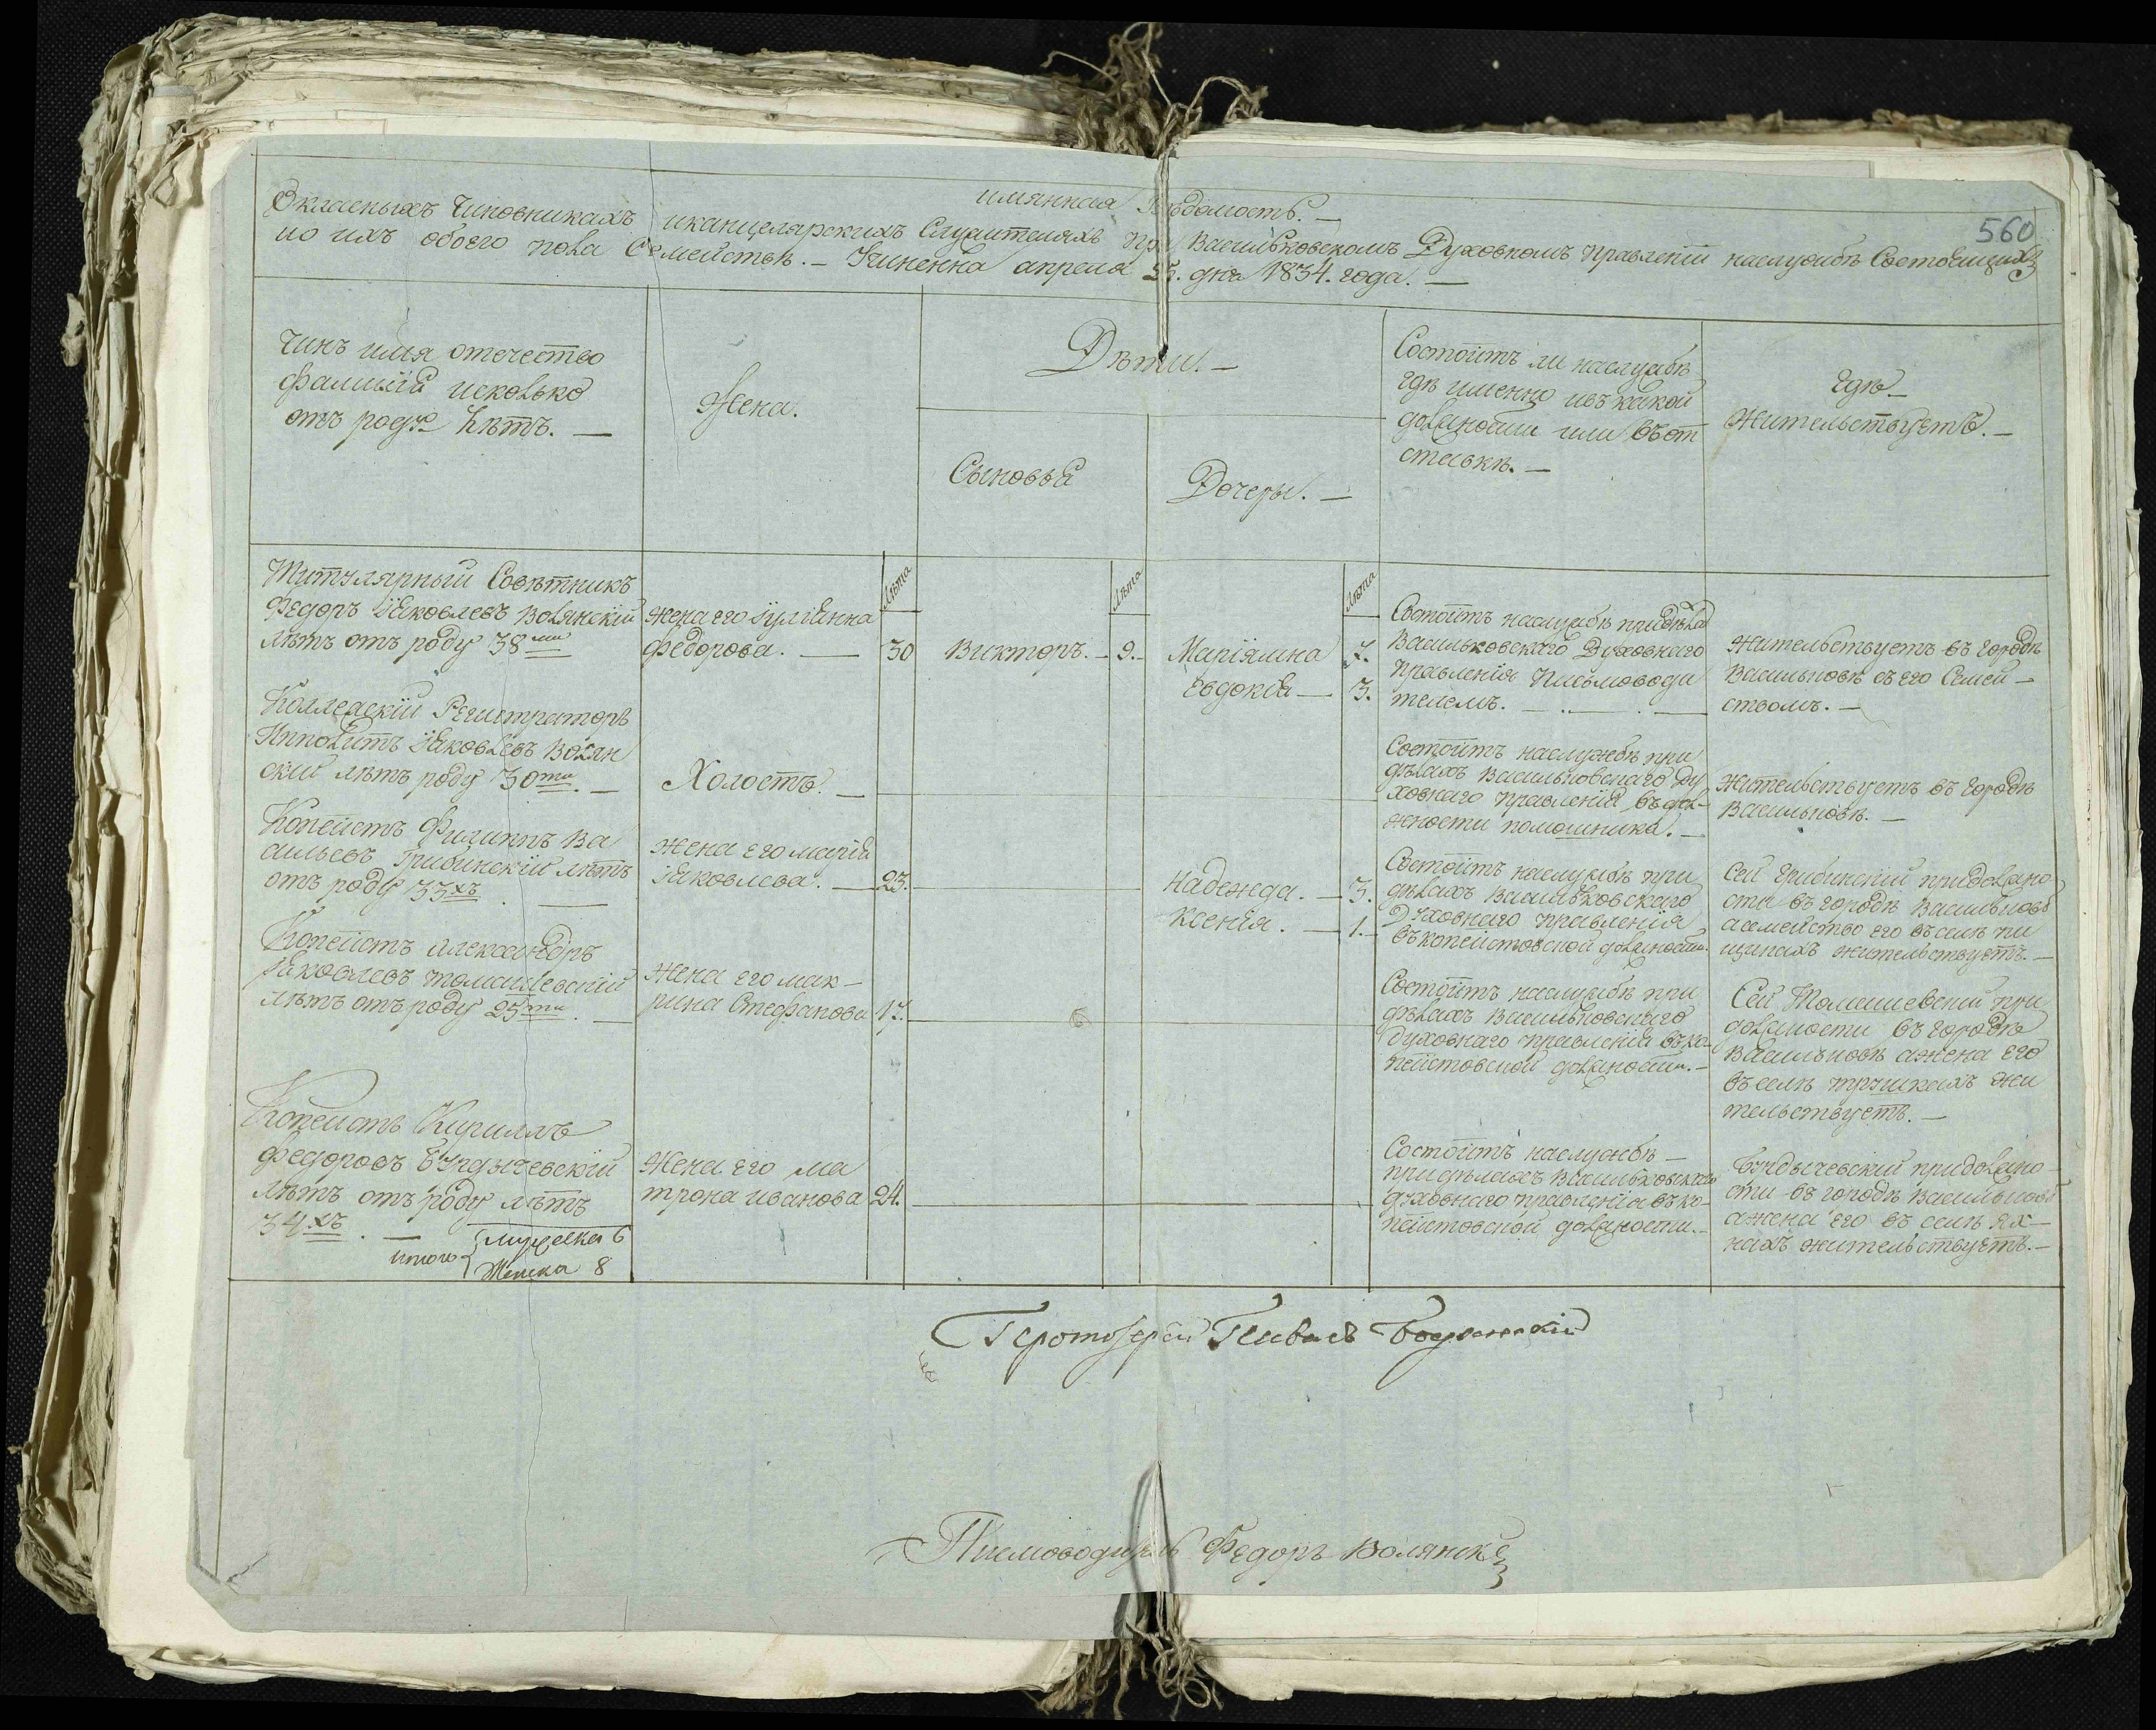 560
имянная Вѣдомость. —
О класныхъ Чиновникахъ иканцелярскихъ Служителяхъ При Васильковскомъ Духовномъ правленіи наслужбѣ Состоящихъ
ио ихъ обоего пола Семействѣ. — Учиненна апреля дня 1834. года. —
Чинъ имя отечество
фамиліи исколько
отъ роду Лѣтъ. —
Жена.
Дѣти. —
Сыновья
Дочеры. —
Состоитъ ли наслужбѣ
гдѣ именно ивъ какой
должности или въ от
ставкѣ. —
Гдѣ
Жительствуетъ. —
Титулярный Совѣтникъ
Федоръ Іаковлевъ Волянскій
лѣтъ отъ роду 38ми
жена его Іулианна
федорова. —
Лѣта
30
Викторъ. —
Лѣта
9. —
Маріямна
Евдокія —
Лѣта
7.
3.
Состоитъ наслужбѣ придѣлах
Васильковскаго Духовнаго
правленія Письмоводи
телемъ. —
Жительствуетъ въ городѣ
Васильковѣ съ его Семей —
ствомъ. —
Коллежскій Регистраторъ
Ипполитъ Іаковлевъ Волян
скій лѣтъ роду 30ти. —
Холостъ. —
Состоитъ наслужбѣ при
дѣлахъ Васильковскаго Ду
ховнаго правленія въ дол-
жности помошника. —
Жительствуетъ въ городѣ
Васильковѣ. —
Копеистъ Филиппъ Ва
сильевъ Грибинскій лѣтъ
отъ роду 33хъ. —
жена его марія
Іаковлева. — 23.
Надежда. — 3.
Ксенія. — 1. —
Состоитъ наслужбѣ при
дѣлахъ Васильковскаго
Духовнаго правленія
въкопеистовской должности.
Сей Грибинскій придолжно
сти въ городѣ Васильковѣ
асемейство его въселѣ пи
щикахъ жительствуетъ. —
Копеистъ Александръ
Іаковлевъ томашевскій
лѣтъ отъ роду 25ти. —
Жена его мак —
рина Стефанова 17.
Состоитъ наслужбѣ при
дѣлахъ Васильковскаго
Духовнаго правленія въко-
пеистовской должности. —
Сей Томашевскій при
должности въ городѣ
Васильковѣ ажена его
въселѣ трушкахъ жи
тельствуетъ. —
Копеистъ Кириллъ
Федоровъ Бундычевскій
лѣтъ отъ роду лѣтъ
34хъ. —
Жена его ма
трона иванова 24.
Состоитъ наслужбѣ —
придѣлахъ Васильковскаго
духовнаго правленія въко-
пеистовской должности. —
Бундычевскій придолжно —
сти въ городѣ Васильковѣ
ажена его въ селѣ Ях —
нахъ жительствуетъ. —
итого
Мужеска 6
Женска 8
Протоіерей
Письмоводитель Федоръ Волянскій